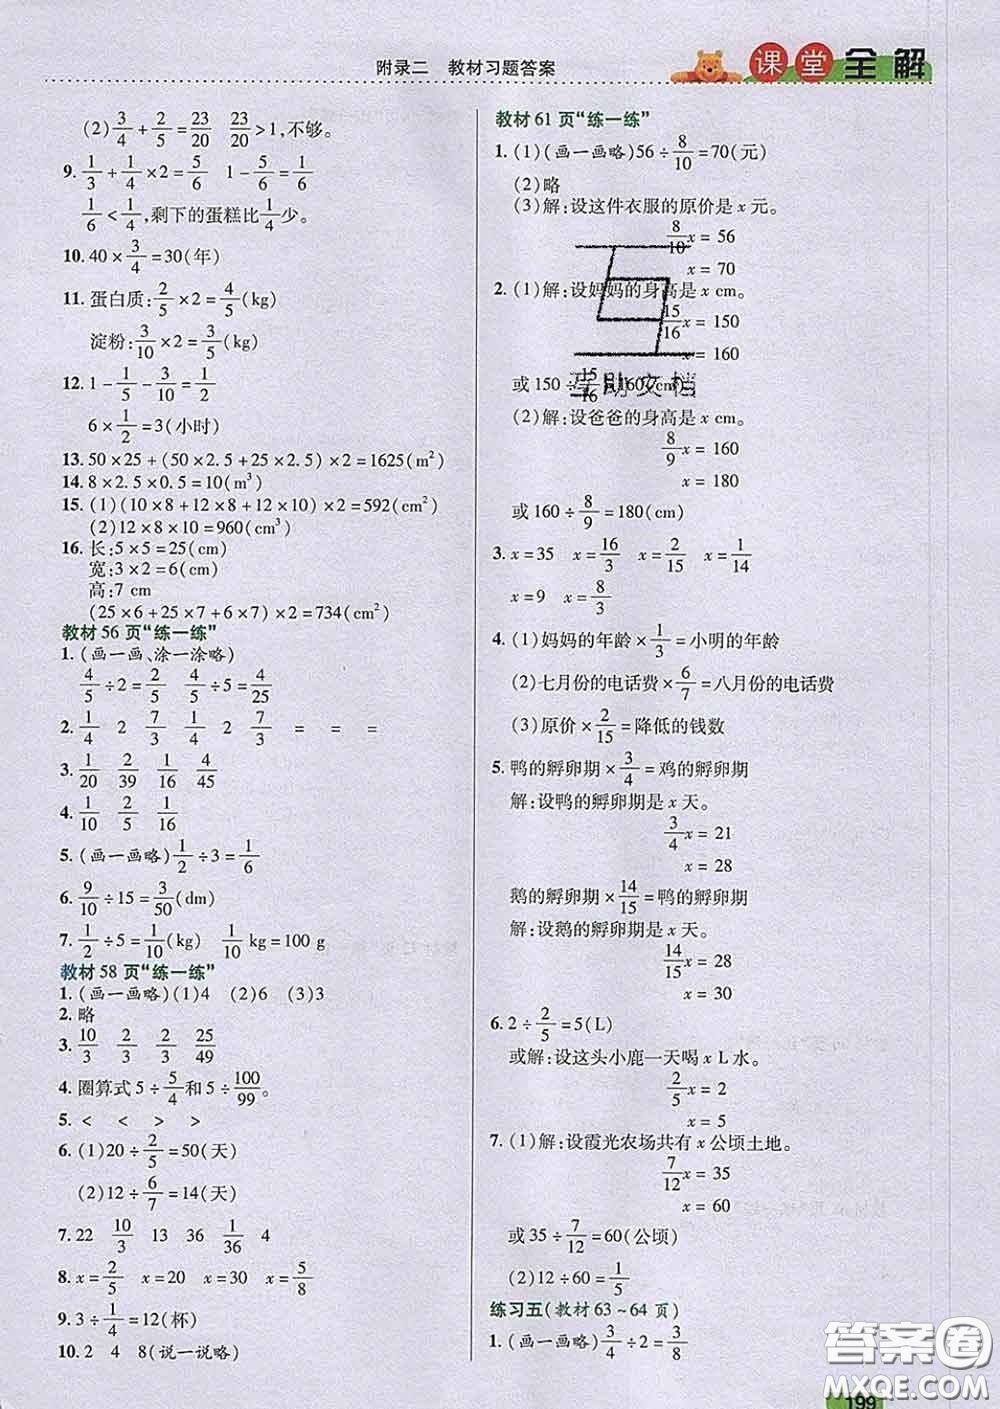 附录二 教材习题答案
课堂全解
(2) 3/4 + 2/5 = 23/20 23/20 > 1,不够。
9. 1/3 + 1/4 × 2 = 5/6 1 - 5/6 = 1/6
1/6 < 1/4,剩下的蛋糕比 1/4 少。
10. 40 × 3/4 = 30(年)
11. 蛋白质: 2/5 × 2 = 4/5 (kg)
淀粉: 3/10 × 2 = 3/5 (kg)
12. 1 - 1/5 - 3/10 = 1/2
6 × 1/2 = 3(小时)
13. 50 × 25 + (50 × 2.5 + 25 × 2.5) × 2 = 1625(m²)
14. 8 × 2.5 × 0.5 = 10(m³)
15. (1)(10 × 8 + 12 × 8 + 12 × 10) × 2 = 592(cm²)
(2)12 × 8 × 10 = 960(cm³)
16. 长:5 × 5 = 25(cm)
宽:3 × 2 = 6(cm)
高:7 cm
(25 × 6 + 25 × 7 + 6 × 7) × 2 = 734(cm²)
教材 56 页“练一练”
1. (画一画、涂一涂略)
4/5 ÷ 2 = 2/5 4/5 ÷ 5 = 4/25
2. 1/4 2 7/3 1/4 2 7/3 = = =
3. 1/20 2/39 1/16 4/45
4. 1/10 2/5 1/16
5. (画一画略) 1/2 ÷ 3 = 1/6
6. 9/10 ÷ 15 = 3/50 (dm)
7. 1/2 ÷ 5 = 1/10 (kg) 1/10 kg = 100 g
教材 58 页“练一练”
1. (画一画略)(1)4 (2)6 (3)3
2. 略
3. 10/3 2/3 2/3 25/49
4. 圈算式 5 ÷ 5/4 和 5 ÷ 100/99。
5. < < > >
6. (1)20 ÷ 2/5 = 50(天)
(2)12 ÷ 6/7 = 14(天)
7. 22 10/3 13 1/36 4
8. x = 2/5 x = 20 x = 30 x = 5/8
9. 3 ÷ 1/4 = 12(杯)
10. 2 4 8(说一说略)
教材 61 页“练一练”
1. (1)(画一画略)56 ÷ 8/10 = 70(元)
(2)略
(3)解:设这件衣服的原价是 x 元。
8/10 x = 56
x = 70
2. (1)解:设妈妈的身高是 x cm。
15/16 x = 150
x = 160
或 150 ÷ 15/16 = 160(cm)
(2)解:设爸爸的身高是 x cm。
8/9 x = 160
x = 180
或 160 ÷ 8/9 = 180(cm)
3. x = 35 x = 16/3 x = 2/15 x = 1/14
x = 9 x = 8/3
4. (1)妈妈的年龄 × 1/3 = 小明的年龄
(2)七月份的电话费 × 6/7 = 八月份的电话费
(3)原价 × 2/15 = 降低的钱数
5. 鸭的孵卵期 × 3/4 = 鸡的孵卵期
解:设鸭的孵卵期是 x 天。
3/4 x = 21
x = 28
鹅的孵卵期 × 14/15 = 鸭的孵卵期
解:设鹅的孵卵期是 x 天。
14/15 x = 28
x = 30
6. 2 ÷ 2/5 = 5(L)
或解:设这头小鹿一天喝 x L 水。
2/5 x = 2
x = 5
7. (1)解:设霞光农场共有 x 公顷土地。
7/12 x = 35
x = 60
或 35 ÷ 7/12 = 60(公顷)
(2)12 ÷ 60 = 1/5
练习五(教材 63 ~ 64 页)
1. (画一画略) 3/4 ÷ 2 = 3/8
199
答案圈
MXQE.COM